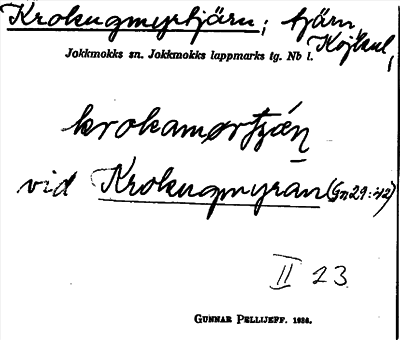 Krokugmyrtjärn; tjärn,
Kojkul,
Jokkmokks sn. Jokkmokks lappmarks tg. Nb l.
krokamørtjä́n
vid Krokugmyran (Gn 29: i2)
II 23
GUNNAR PELLIJEFF. 1936.